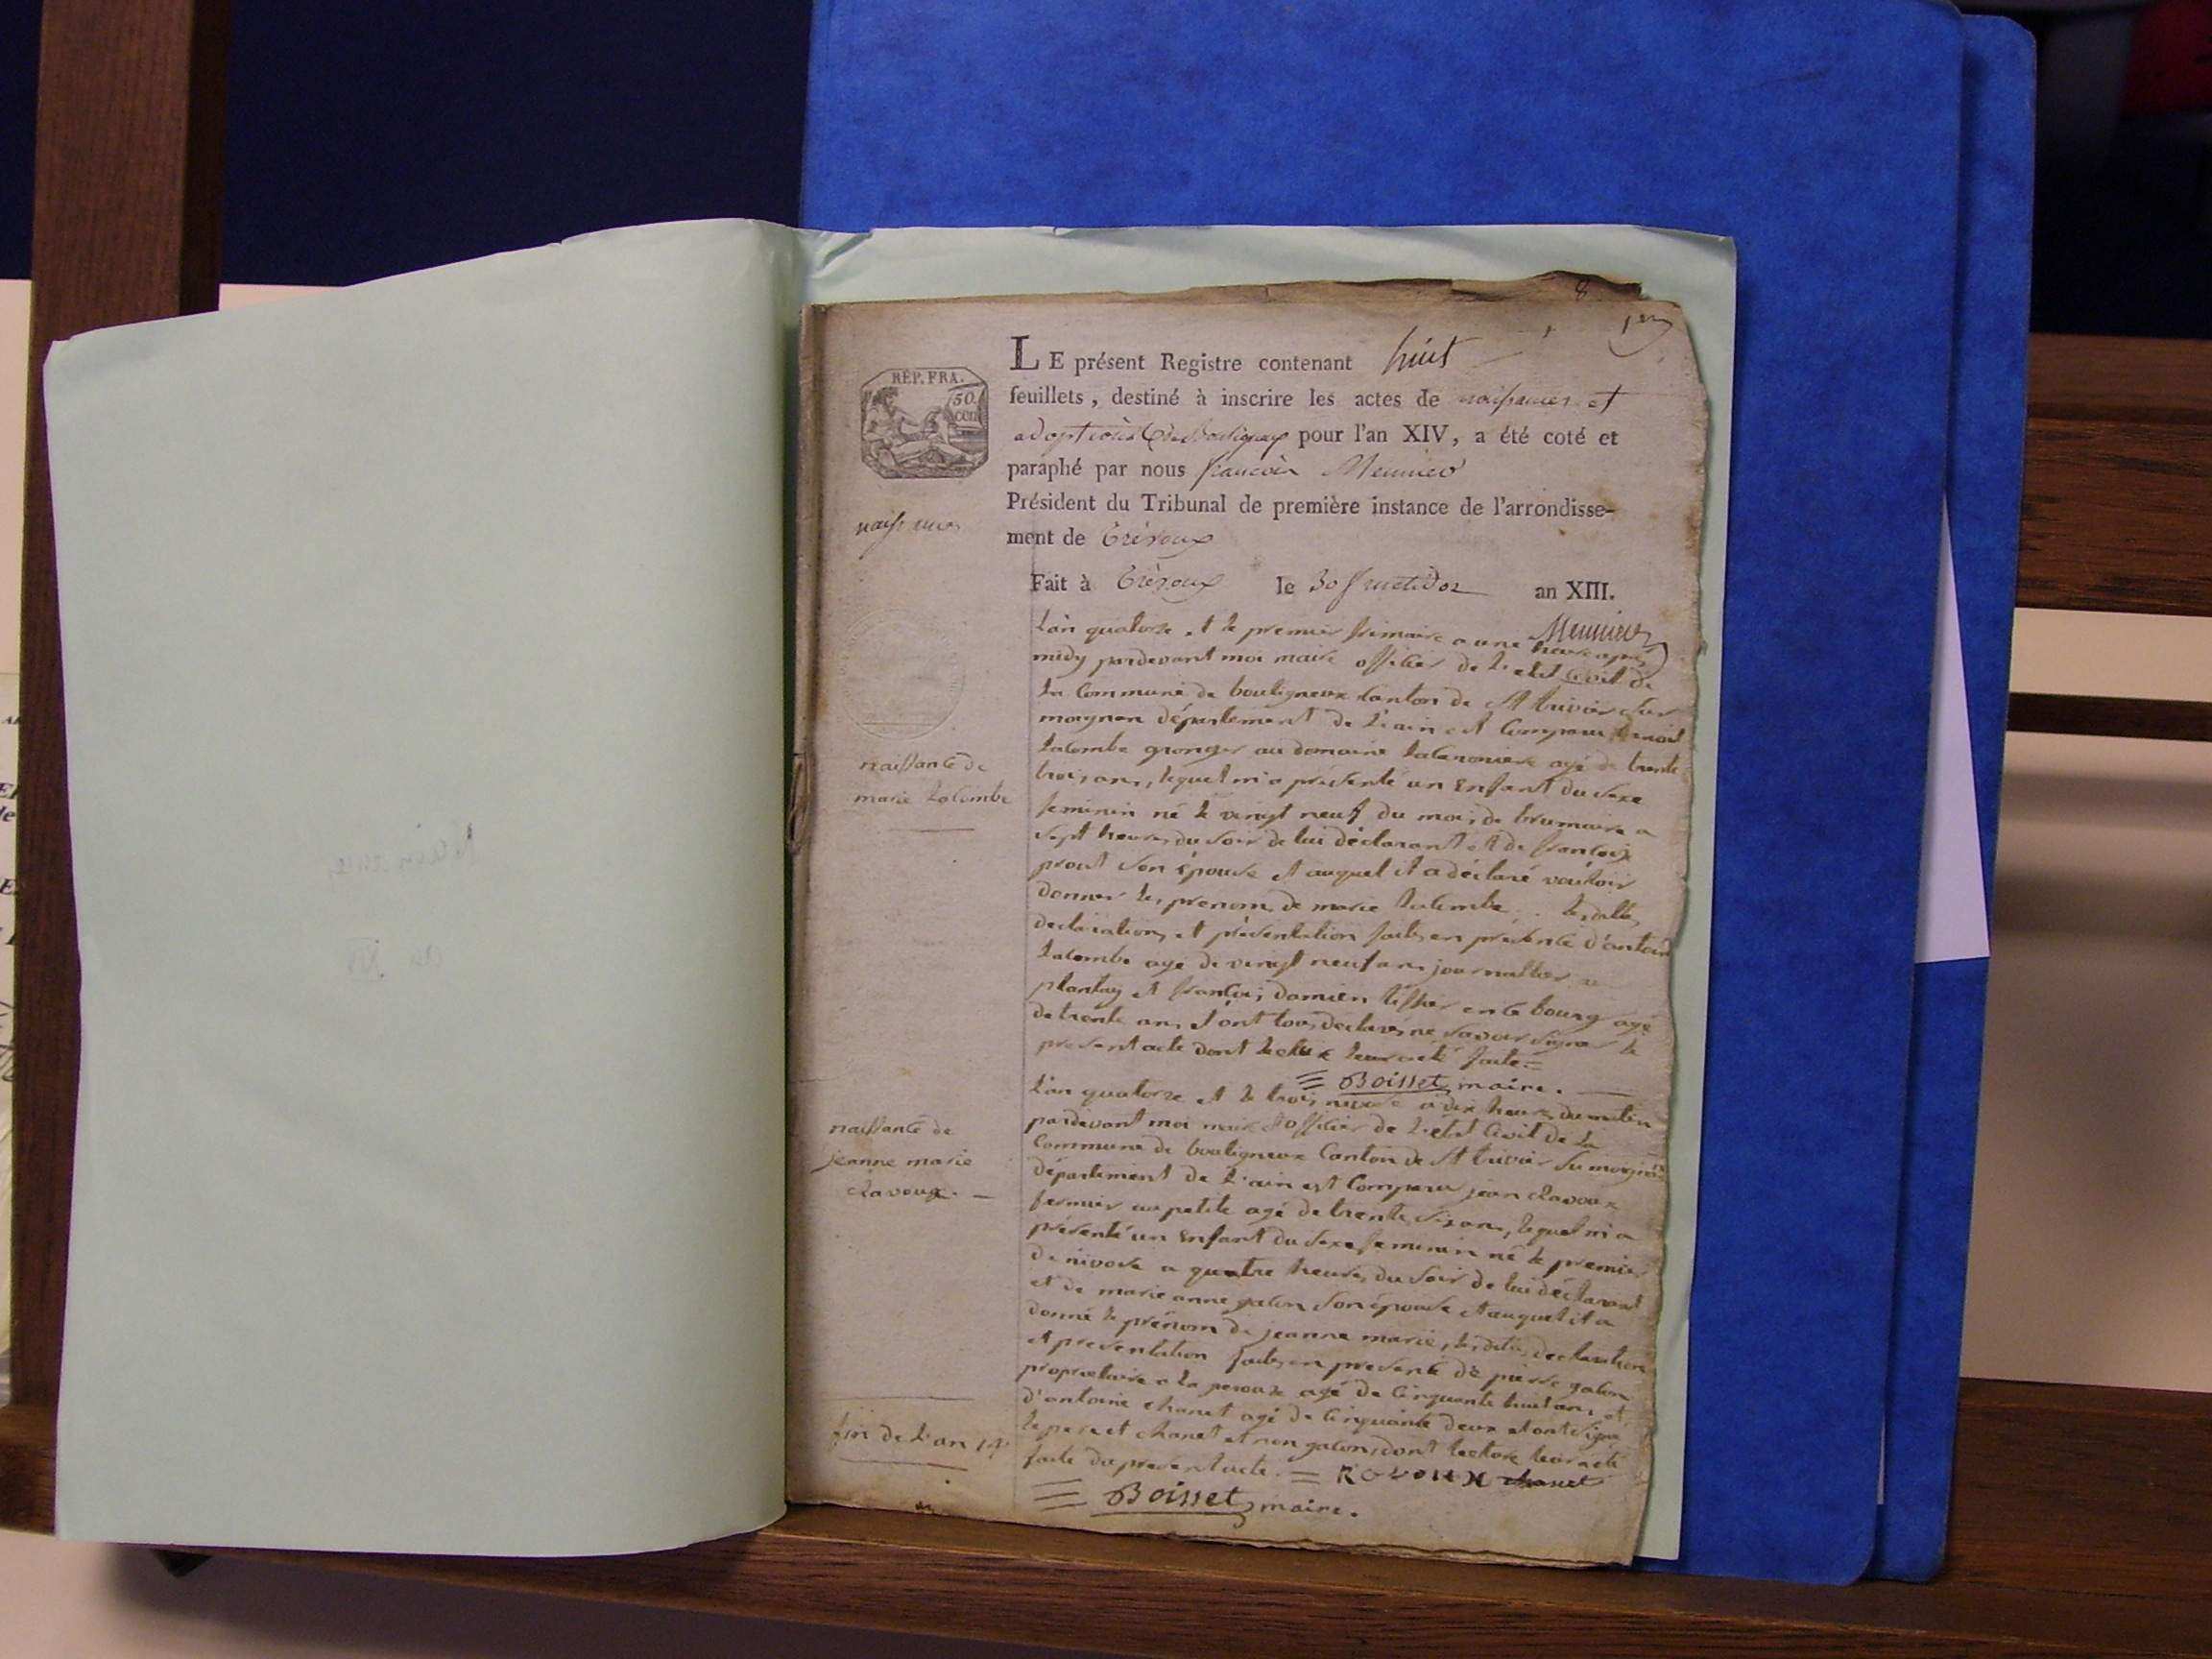 8
1er
RÉP. FRA.
50
CEN
LE présent Registre contenant huit
feuillets, destiné à inscrire les actes de naissances et
adoptions de Bouligneux pour l'an XIV, a été coté et
paraphé par nous françois Meunier
Président du Tribunal de première instance de l'arrondisse-
ment de Trévoux
naissances
Fait à Trévoux le 30 fructidor an XIII.
Meunier
L'an quatorze et le premier frimaire a une heure après
midy pardevant moi maire officier de l'etat Civil de
la Commune de bouligneux Canton de St trivier sur
moignan département de l'ain est Comparu benoit
lacombe granger au domaine agé de trente
trois ans, lequel m'a présenté un Enfant du sexe
feminin né le vingt neuf du mois de brumaire a
sept heures du soir de lui déclarant et de françoise
prost son épouse et auquel il a déclaré vouloir
donner les prenoms de marie lacombe. les dittes
declarations et présentation faites en présence d'antoine
lacombe agé de vingt neuf ans journallier
plantay et françois damien tissier en ce bourg agé
de trente ans et ont tous declarés ne savoir signer le
present acte dont lecture leur a eté faite =
= Boisset maire.
naissance de
marie lacombe
L'an quatorze et le trois nivose a dix heures du matin
pardevant moi maire et officier de l'etat Civil de la
Commune de bouligneux Canton de St trivier su moignan
département de l'ain est Comparu jean clavoux
fermier au petite agé de trente six ans, lequel m'a
présenté un Enfant du sexe feminin né le premier
de nivose a quatre heures du soir de lui déclarant
et de marie anne galon son épouse et auquel il a
donné le prénom de jeanne marie, les dites declarations
et presentation faites en presence de pierre galon
propriétaire a la perouze agé de Cinquante huit ans, et
d'antoine chanet agé de Cinquante deux et ont signé
le pere et chanet et non galon, dont lecture leur a eté
faite du present acte. = chanet
= Boisset maire.
naissance de
jeanne marie
clavoux. —
fin de l'an 14